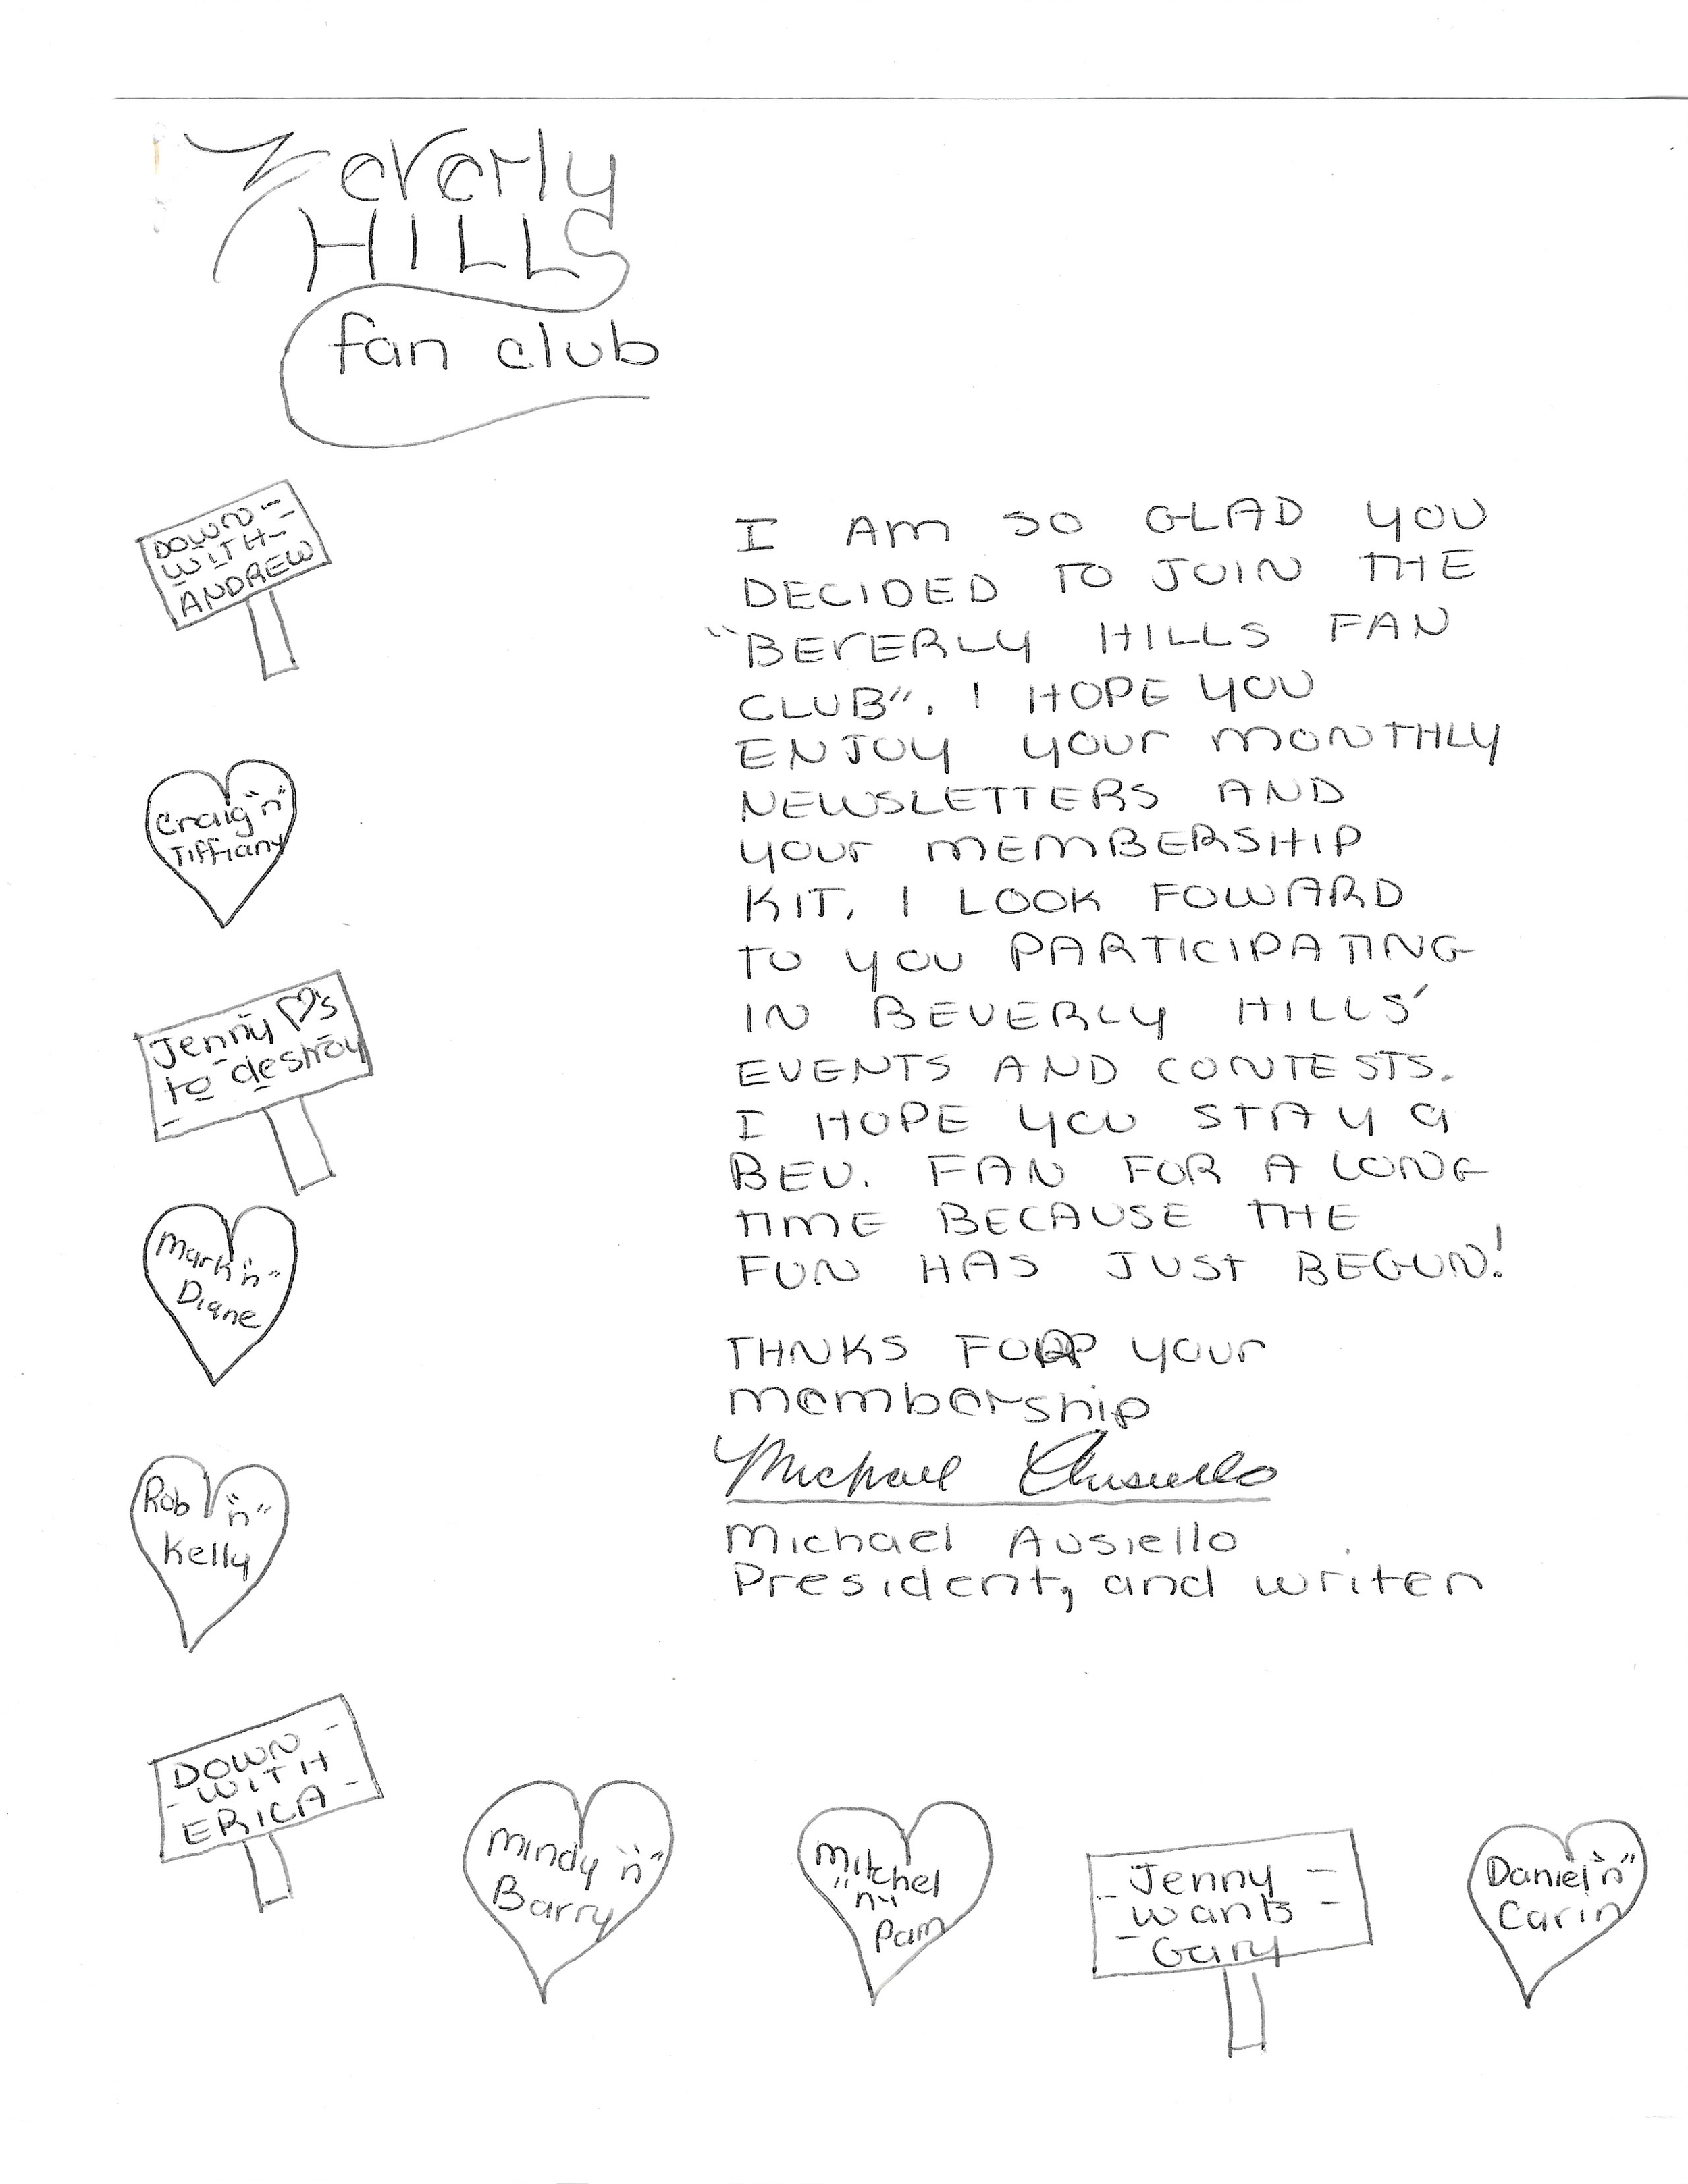 Beverly
HILLS
fan club
DOWN
WITH
ANDREW
Craig "n"
Tiffiany
Jenny ♡'s
to destroy
Mark "n"
Diane
Rob "n"
Kelly
DOWN
WITH
ERICA
I AM SO GLAD YOU
DECIDED TO JOIN THE
"BEVERLY HILLS FAN
CLUB". I HOPE YOU
ENJOY YOUR MONTHLY
NEWSLETTERS AND
YOUR MEMBERSHIP
KIT. I LOOK FOWARD
TO YOU PARTICIPATING
IN BEVERLY HILLS'
EVENTS AND CONTESTS.
I HOPE YOU STAY A
BEV. FAN FOR A LONG
TIME BECAUSE THE
FUN HAS JUST BEGUN!
THNKS FOR YOUR
membership
Michael Ausiello
Michael Ausiello
President, and writer
Mindy "n"
Barry
Mitchel
"n"
Pam
Jenny
wants
Gary
Daniel "n"
Carin